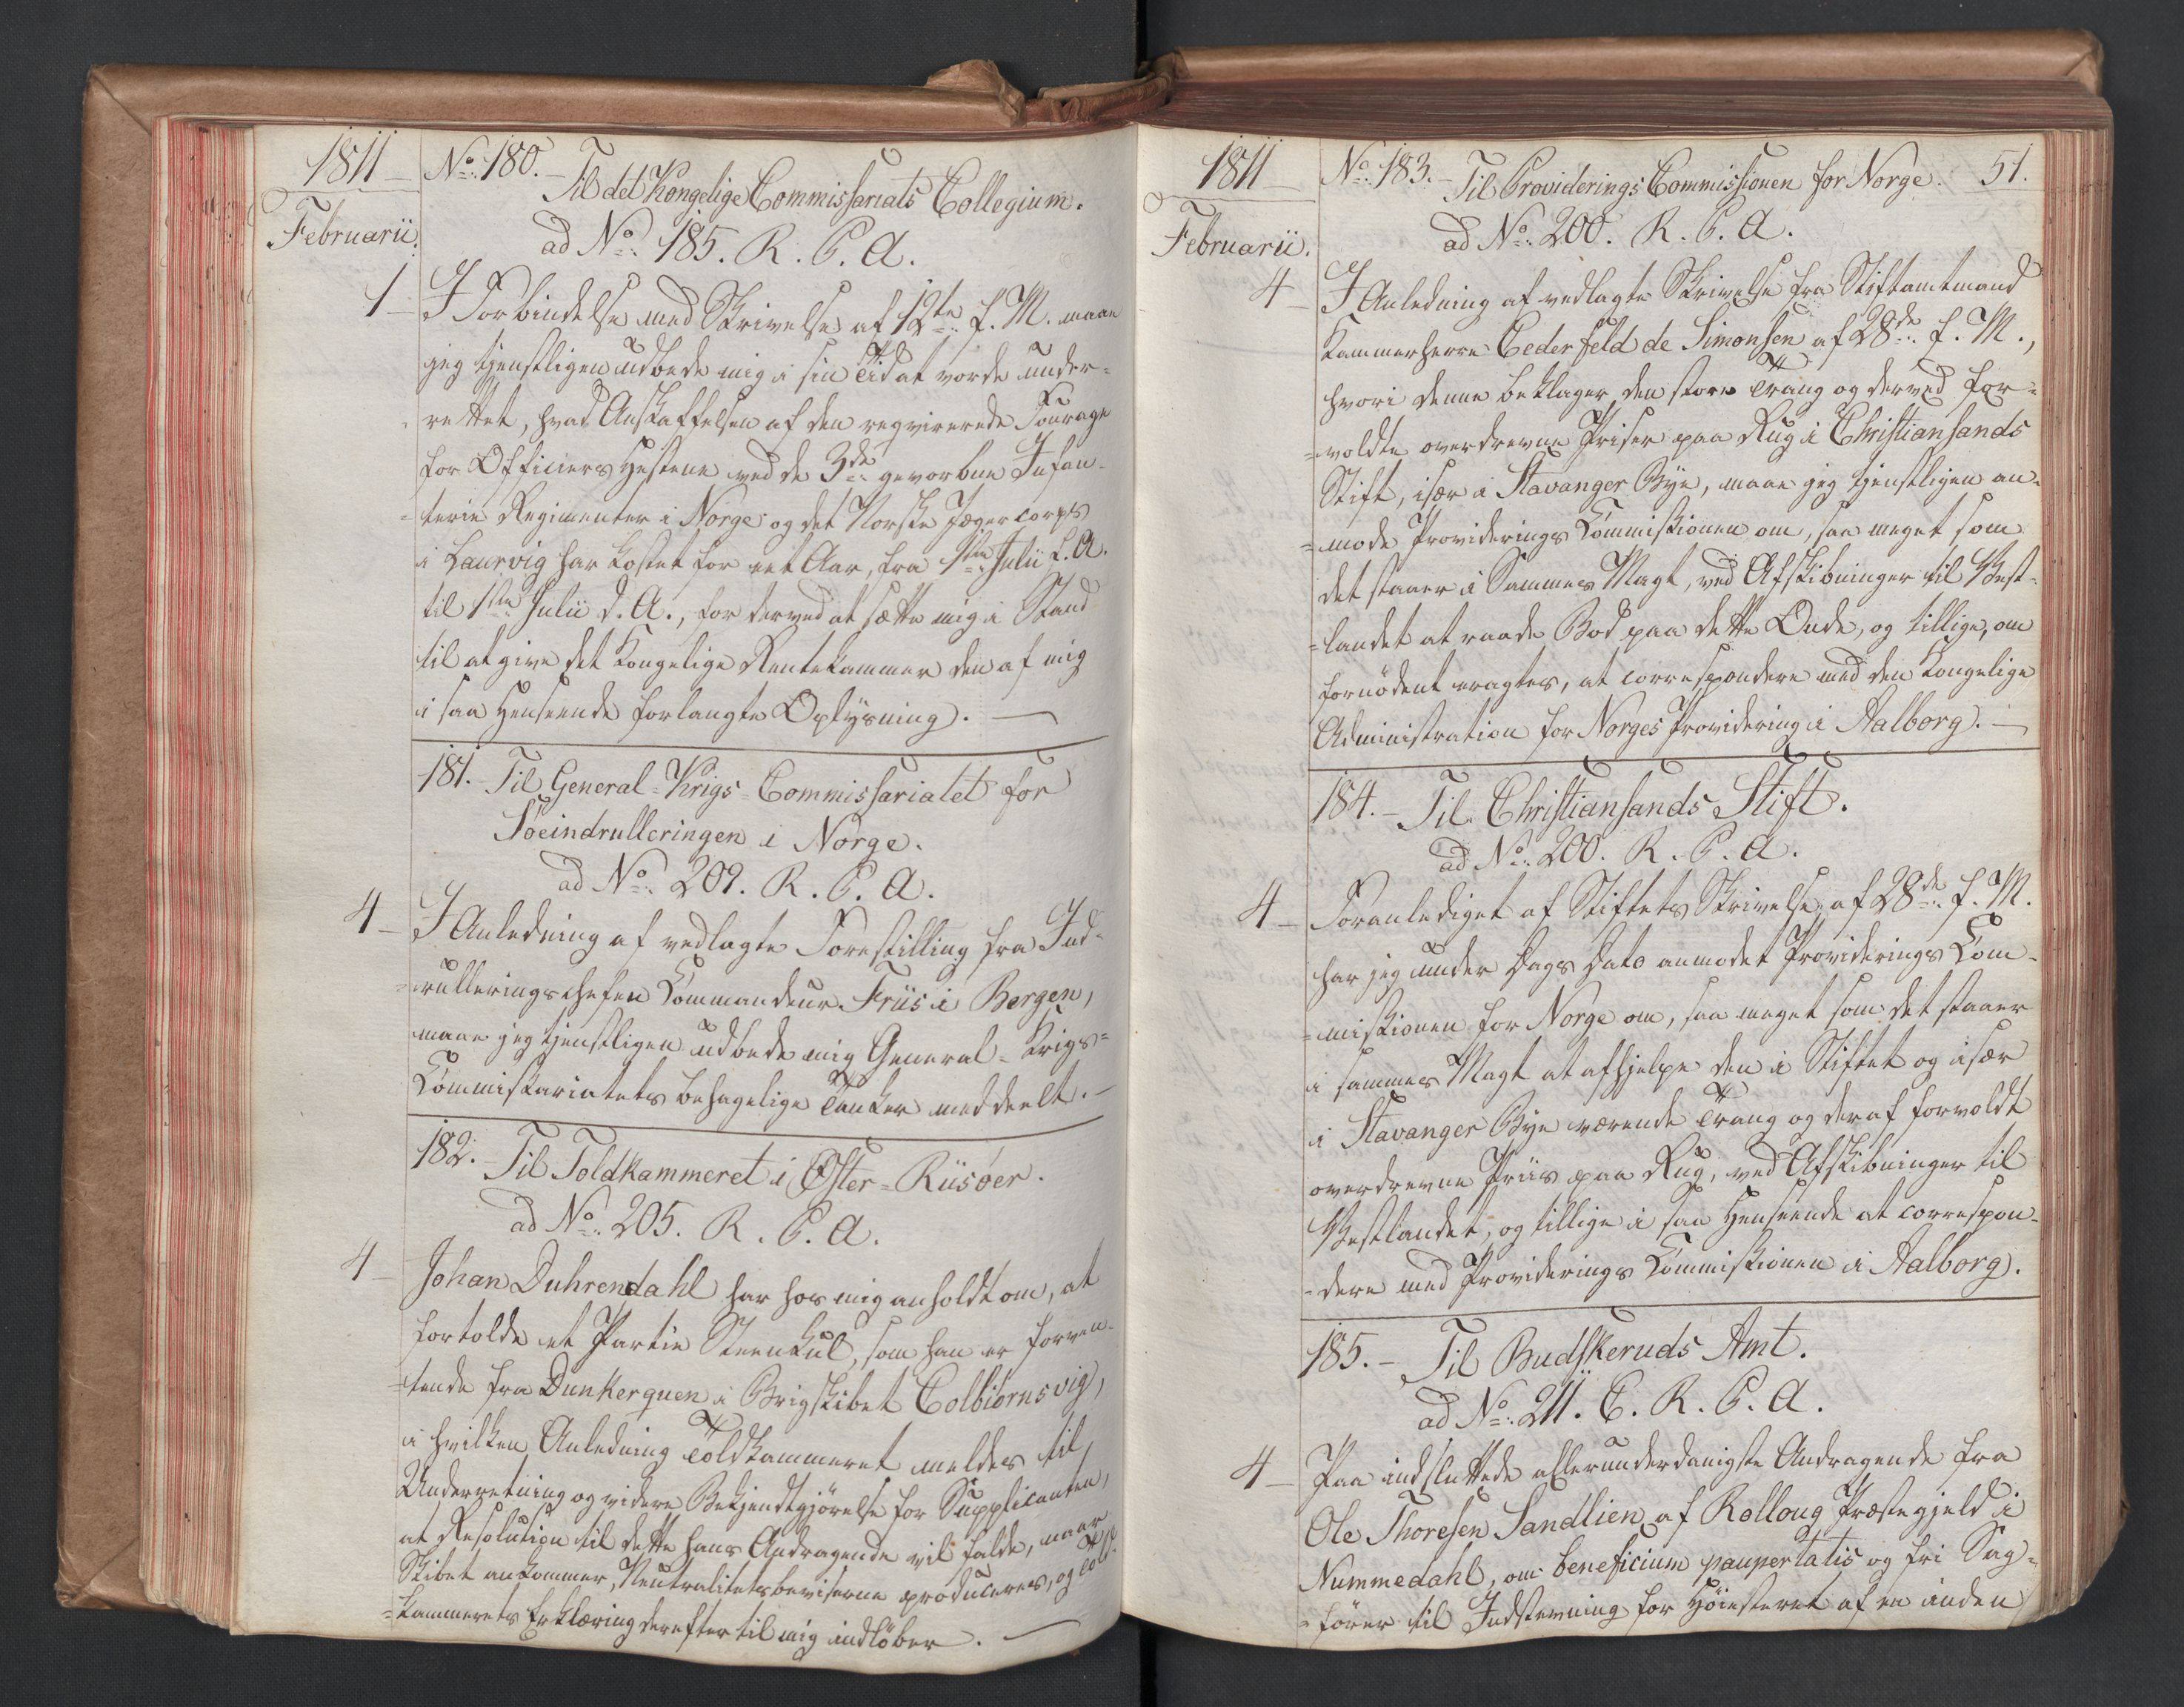 1811
Februarii.
No. 180. - Til det Kongelige Commissariats Collegium.
ad No. 185. R. C. A.
1 - I Forbindelse med Skrivelse af 12te f. M. maae
jeg tjenstligen udbede mig i sin Tid at vorde under-
rettet, hvad Anskaffelsen af den reqvirerede Fourage
for Officiers Hestene ved de 3de gevorbne Infan-
=terie Regimenter i Norge og det Norske Jægercorps
i Laurvig har kostet for eet Aar, fra 1ste Julii f. A.
til 1ste Julii d. A., for derved at sætte mig i Stand
til at give det Kongelige Rentekammer den af mig
i saa Henseende forlangte Oplysning. —
181. - Til General-Krigs-Commissariatet for
Söeindrulleringen i Norge.
ad No. 209. R. C. A.
4 - I Anledning af vedlagte Forestilling fra Ind-
=rulleringschefen Commandeur Friis i Bergen,
maae jeg tjenstligen udbede mig General-Krigs=
Commissariatets behagelige Tanker meddeelt. -
182. - Til Toldkammeret i Øster-Riisöer.
ad No. 205. R. C. A.
4 - Johan Duhrendahl har hos mig anholdt om, at
fortolde et Partie Steenkul, som han er forven-
=tende fra Dunkerquen i Brigskibet Colbiörnsvig,
i hvilken Anledning Toldkammeret meldes til
Underretning og videre Bekjendtgjörelse for Supplicanten,
at Resolution til dette hans Andragende vil falde, naar
Skibet ankommer, Neutralitetsbeviserne produceres, og Told-
=kammerets Erklæring derefter til mig indlöber. —
1811
Februarii.
No. 183. - Til Providerings Commissionen for Norge. 51.
ad No. 200. R. C. A.
4 - I Anledning af vedlagte Skrivelse fra Stiftamtmand
Kammerherre Cederfeld de Simonsen af 28de f. M.,
hvori denne beklager den store Trang og derved for=
=voldte overdrevne Priser paa Rug i Christiansands
Stift, især i Stavanger Bye, maae jeg tjenstligen an-
=mode Providerings Commissionen om, saa meget som
det staaer i Sammes Magt, ved Afskibninger til Vest-
=landet at raade Bod paa dette Onde, og tillige, om
fornödent eragtes, at correspondere med den Kongelige
Administration for Norges Providering i Aalborg. —
184. - Til Christiansands Stift.
ad No. 200. R. C. A.
4 - Foranlediget af Stiftets Skrivelse af 28de f. M.
har jeg under Dags Dato anmodet Providerings Com-
=missionen for Norge om, saa meget som det staaer
i sammes Magt at afhjelpe den i Stiftet og især
i Stavanger Bye værende Trang og deraf forvoldt
overdrevne Priis paa Rug, ved Afskibninger til
Vestlandet, og tillige i saa Henseende at correspon-
=dere med Providerings Commissionen i Aalborg.
185. - Til Budskeruds Amt.
ad No. 211. C. R. C. A.
4 - Paa indsluttede allerunderdanigste Andragende fra
Ole Thoresen Sandlien af Rolloug Præstegjeld i
Nummedahl, om beneficium paupertatis og fri Sag-
=förer til Indstevning for Höiesteret af en inden